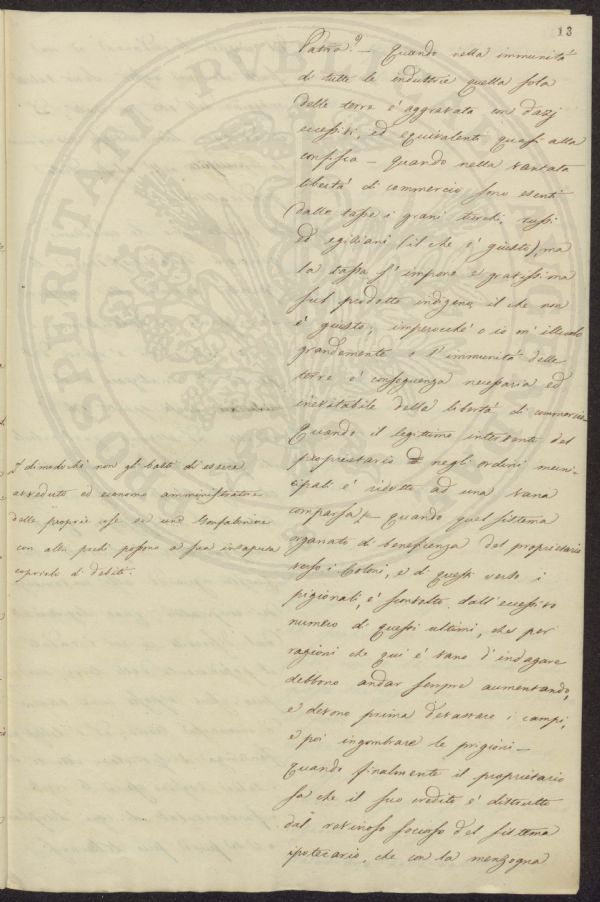 13
Patria? — Quando nella immunità
di tutte le industrie quella sola
delle terre è aggravata con dazj
eccessivi, ed equivalenti quasi alla
confisca — quando nella vantata
libertà di commercio sono esenti
dalle tasse i grani turchi, russi
ed egiziani (il che è giusto), ma
la tassa s'impone e gravissima
sul prodotto indigeno, il che non
è giusto; imperocchè o io m'illudo
grandemente o l'immunità delle
terre è conseguenza necessaria ed
inevitabile della libertà di commercio
Quando il legittimo intervento del
proprietario negli ordini muni-
cipali è ridotto ad una vana
comparsa — quando quel sistema
organato di beneficenza del proprietario
verso i Coloni, e di questi verso i
pigionali, è sconvolto dall'eccessivo
numero di questi ultimi, che per
ragioni che qui è vano d'indagare
debbono andar sempre aumentando,
e devono prima devastare i campi,
e poi ingombrare le prigioni —
Quando finalmente il proprietario
sa che il suo credito è distrutto
dal rovinoso soccorso del sistema
ipotecario, che con la menzogna
di modo chè non gli basti di essere
avveduto ed economo amministratore
delle proprie cose se un Gonfaloniere
con altri pochi possono a sua insaputa
caricarlo di debiti.
PROSPERITATI PVBLICAE